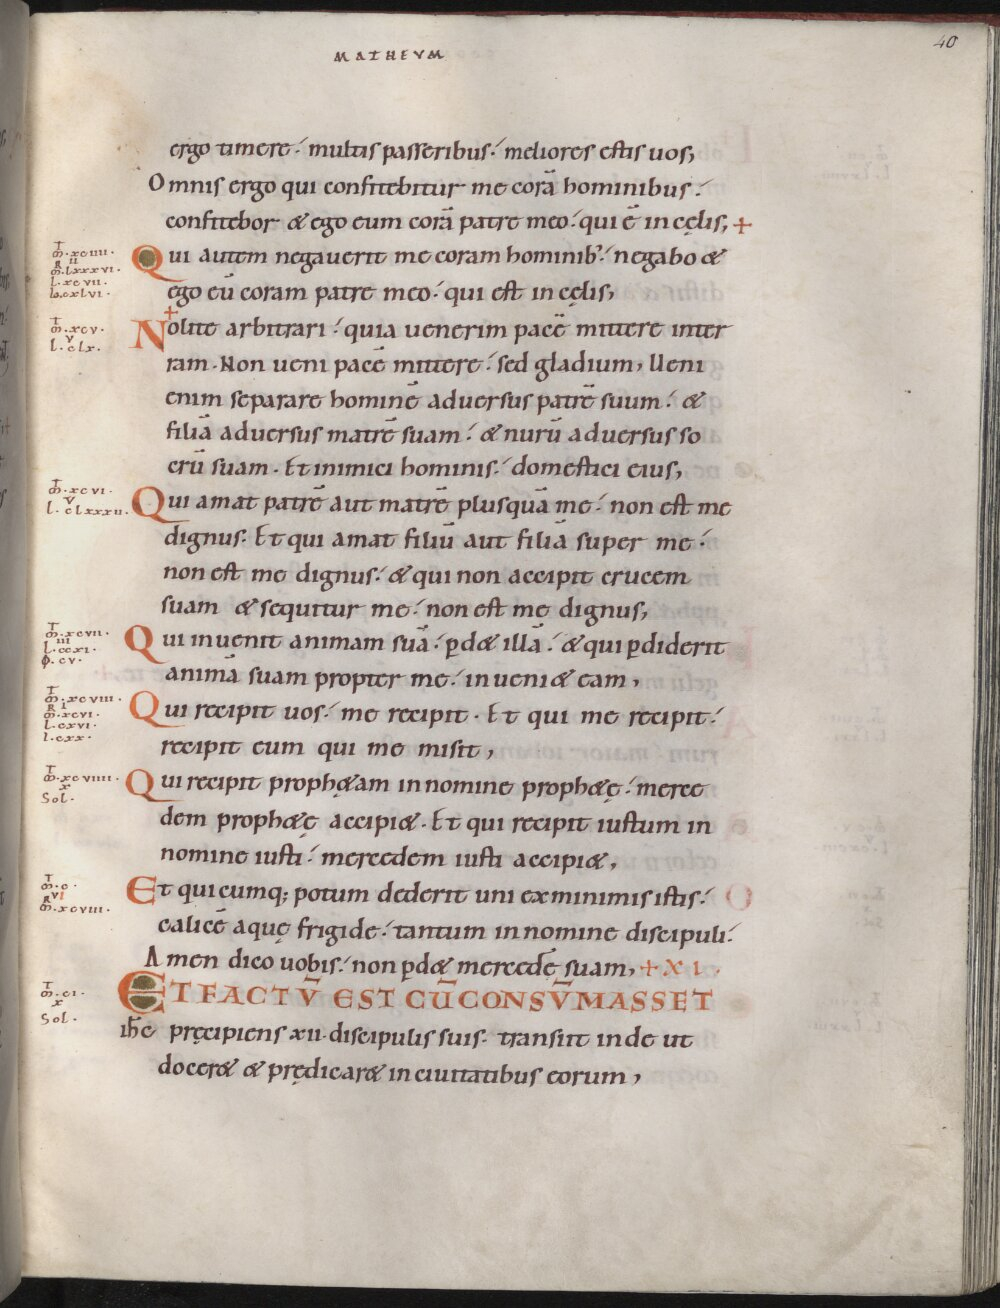 MATHEUM
40
ergo timere·́ multis passeribus·́ meliores estis uos,
Omnis ergo qui confitebitur me corā hominibus·́
confitebor & ego eum corā patre meo·́ qui ē in cęlis, +
T
m̄·xcuiiii·
Qui autem negauerit me coram hominib·́ negabo &
R II
m̄·lxxxvi·
l·xcvii·
l·cxlvi·
ego eū coram patre meo·́ qui est in cęlis,
+
T
m̄·xcv·
v
l·clx·
Nolite arbitrari·́ quia uenerim pacē mittere inter
ram· Non ueni pacē mittere·́ sed gladium, Ueni
enim separare hominē aduersus patrē suum·́ &
filiā aduersus matrē suam·́ & nurū aduersus so
crū suam· Et inimici hominis·́ domestici eius,
T
m̄·xcvi·
v
l·clxxxii·
Qui amat patrē aut matrē plusquā me·́ non est me
dignus· Et qui amat filiū aut filiā super me·́
non est me dignus·́ & qui non accipit crucem
suam & sequitur me·́ non est me dignus,
T
m̄·xcvii·
III
l·ccxi·
φ·cv·
Qui inuenit animam suā·́ p̄d& illā·́ & qui p̄diderit
animā suam propter me·́ inueni& eam,
T
m̄·xcviii·
R I
m̄·xcvi·
l·cxvi·
l·cxx·
Qui recipit uos·́ me recipit· Et qui me recipit·́
recipit eum qui me misit,
T
m̄·xcviiii·
x
Sol·
Qui recipit proph&am in nomine proph&ę·́ merce
dem proph&ę accipi&· Et qui recipit iustum in
nomine iusti·́ mercedem iusti accipi&,
T
m̄·c·
VI
R
m̄·xcviii·
Et quicumq; potum dederit uni ex minimis istis·́
calicē aquę frigide·́ tantum in nomine discipuli·́
Amen dico uobis·́ non p̄d& mercedē suam, + XI·
T
m̄·ci·
x
Sol·
ET FACTŪ EST CŪ CONSŪMASSET
ih̄c pręcipiens xii· discipulis suis· transiit inde ut
docer& & prędicar& in ciuitatibus eorum,